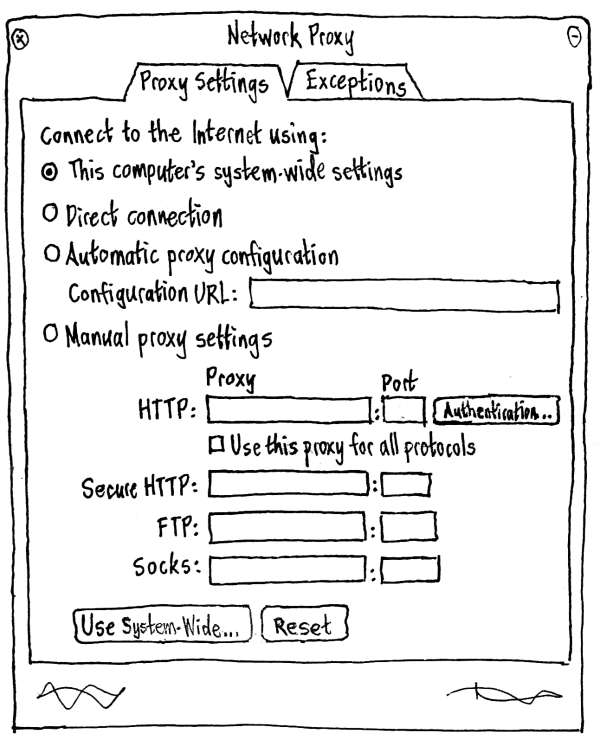 Network Proxy
Proxy Settings Exceptions
Connect to the Internet using:
This computer's system-wide settings
Direct connection
Automatic proxy configuration
Configuration URL:
Manual proxy settings
Proxy Port
HTTP: : Authentication...
Use this proxy for all protocols
Secure HTTP: :
FTP: :
Socks: :
Use System-Wide... Reset